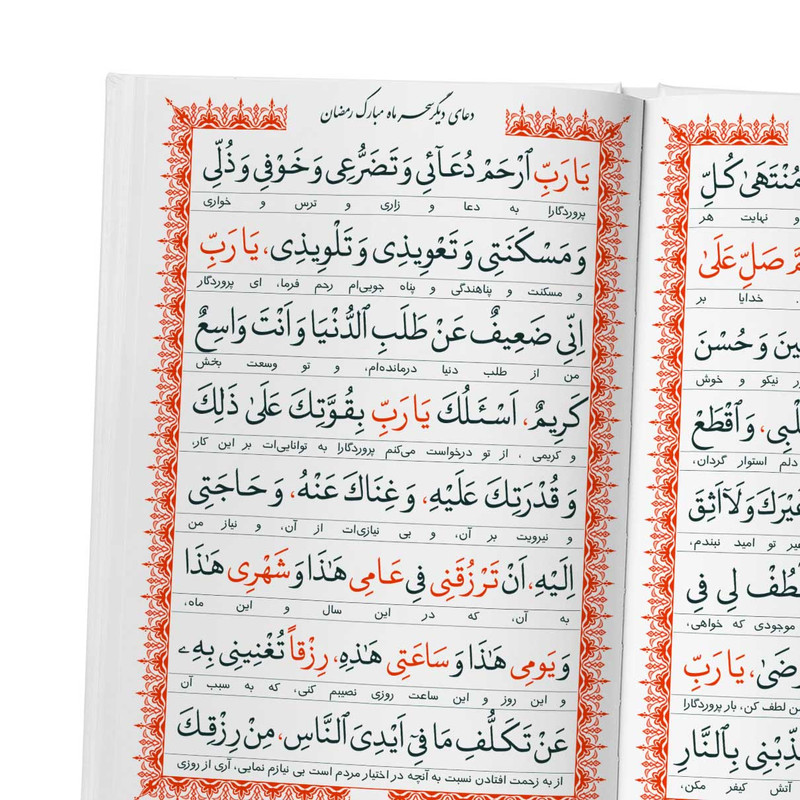 دعای دیگر سحر ماه مبارک رمضان
یَا رَبِّ ٱرْحَمْ دُعَآئِی وَ تَضَرُّعِی وَ خَوْفِی وَ ذُلِّی
پروردگارا به دعا و زاری و ترس و خواری
وَ مَسْکَنَتِی وَ تَعْوِیذِی وَ تَلْوِیذِی، یَا رَبِّ
و مسکنت و پناهندگی و پناه جویی‌ام رحم فرما، ای پروردگار
اِنِّی ضَعِیفٌ عَنْ طَلَبِ ٱلدُّنْیَا وَ اَنْتَ وَاسِعٌ
من از طلب دنیا درمانده‌ام، و تو وسعت بخش
کَرِیمٌ، اَسْئَلُكَ یَا رَبِّ بِقُوَّتِكَ عَلَیٰ ذَلِكَ
و کریمی ، از تو درخواست می‌کنم پروردگارا به توانایی‌ات بر این کار،
وَ قُدْرَتِكَ عَلَیْهِ، وَ غِنَاكَ عَنْهُ، وَ حَاجَتِی
و نیرویت بر آن، و بی نیازی‌ات از آن، و نیاز من
اِلَیْهِ، اَنْ تَرْزُقَنِی فِی عَامِی هٰذَا وَ شَهْرِی هٰذَا
به آن، که در این سال و این ماه،
وَ یَومِی هٰذَا وَ سَاعَتِی هٰذِهِ، رِزْقاً تُغْنِینِی بِهِ
و این روز و این ساعت روزی نصیبم کنی، که به سبب آن
عَنْ تَکَلُّفِ مَا فِیٓ اَیْدِیَ ٱلنَّاسِ، مِنْ رِزْقِكَ
از به زحمت افتادن نسبت به آنچه در اختیار مردم است بی نیازم نمایی، آری از روزی
مُنْتَهَیٰ کُلِّ
و نهایت هر
صَلِّ عَلَیٰ
خدایا بر
وَ حُسْنَ
نیکو و خوش
وَ ٱقْطَعْ
دلم استوار گردان،
وَ لَآ اَثِقَ
تو امید نبندم،
لِی فِی
موجودی که خواهی،
یَا رَبِّ
لطف کن، بار پروردگارا
بِٱلنَّارِ
آتش کیفر مکن،